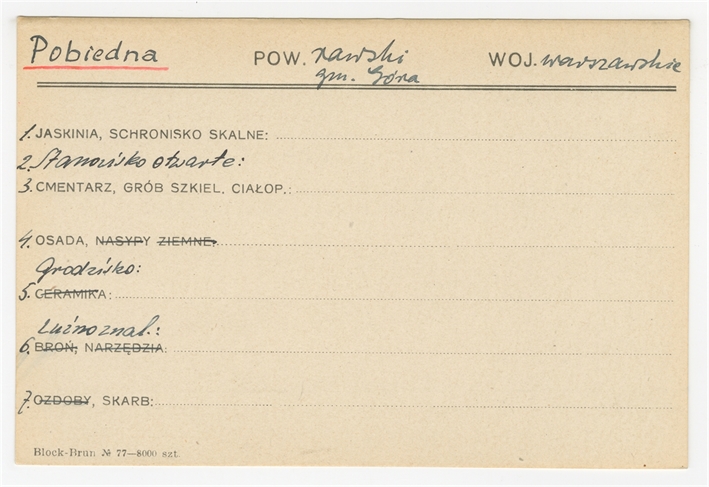 Pobiedna POW. rawski WOJ. warszawskie
gm. Góra
1. JASKINIA, SCHRONISKO SKALNE:
2. Stanowisko otwarte:
3. CMENTARZ, GRÓB SZKIEL. CIAŁOP.:
4. OSADA, NASYPY ZIEMNE:
Grodzisko:
5. CERAMIKA:
Luźno znal.:
6. BROŃ, NARZĘDZIA:
7. OZDOBY, SKARB:
Block-Brun № 77—8000 szt.